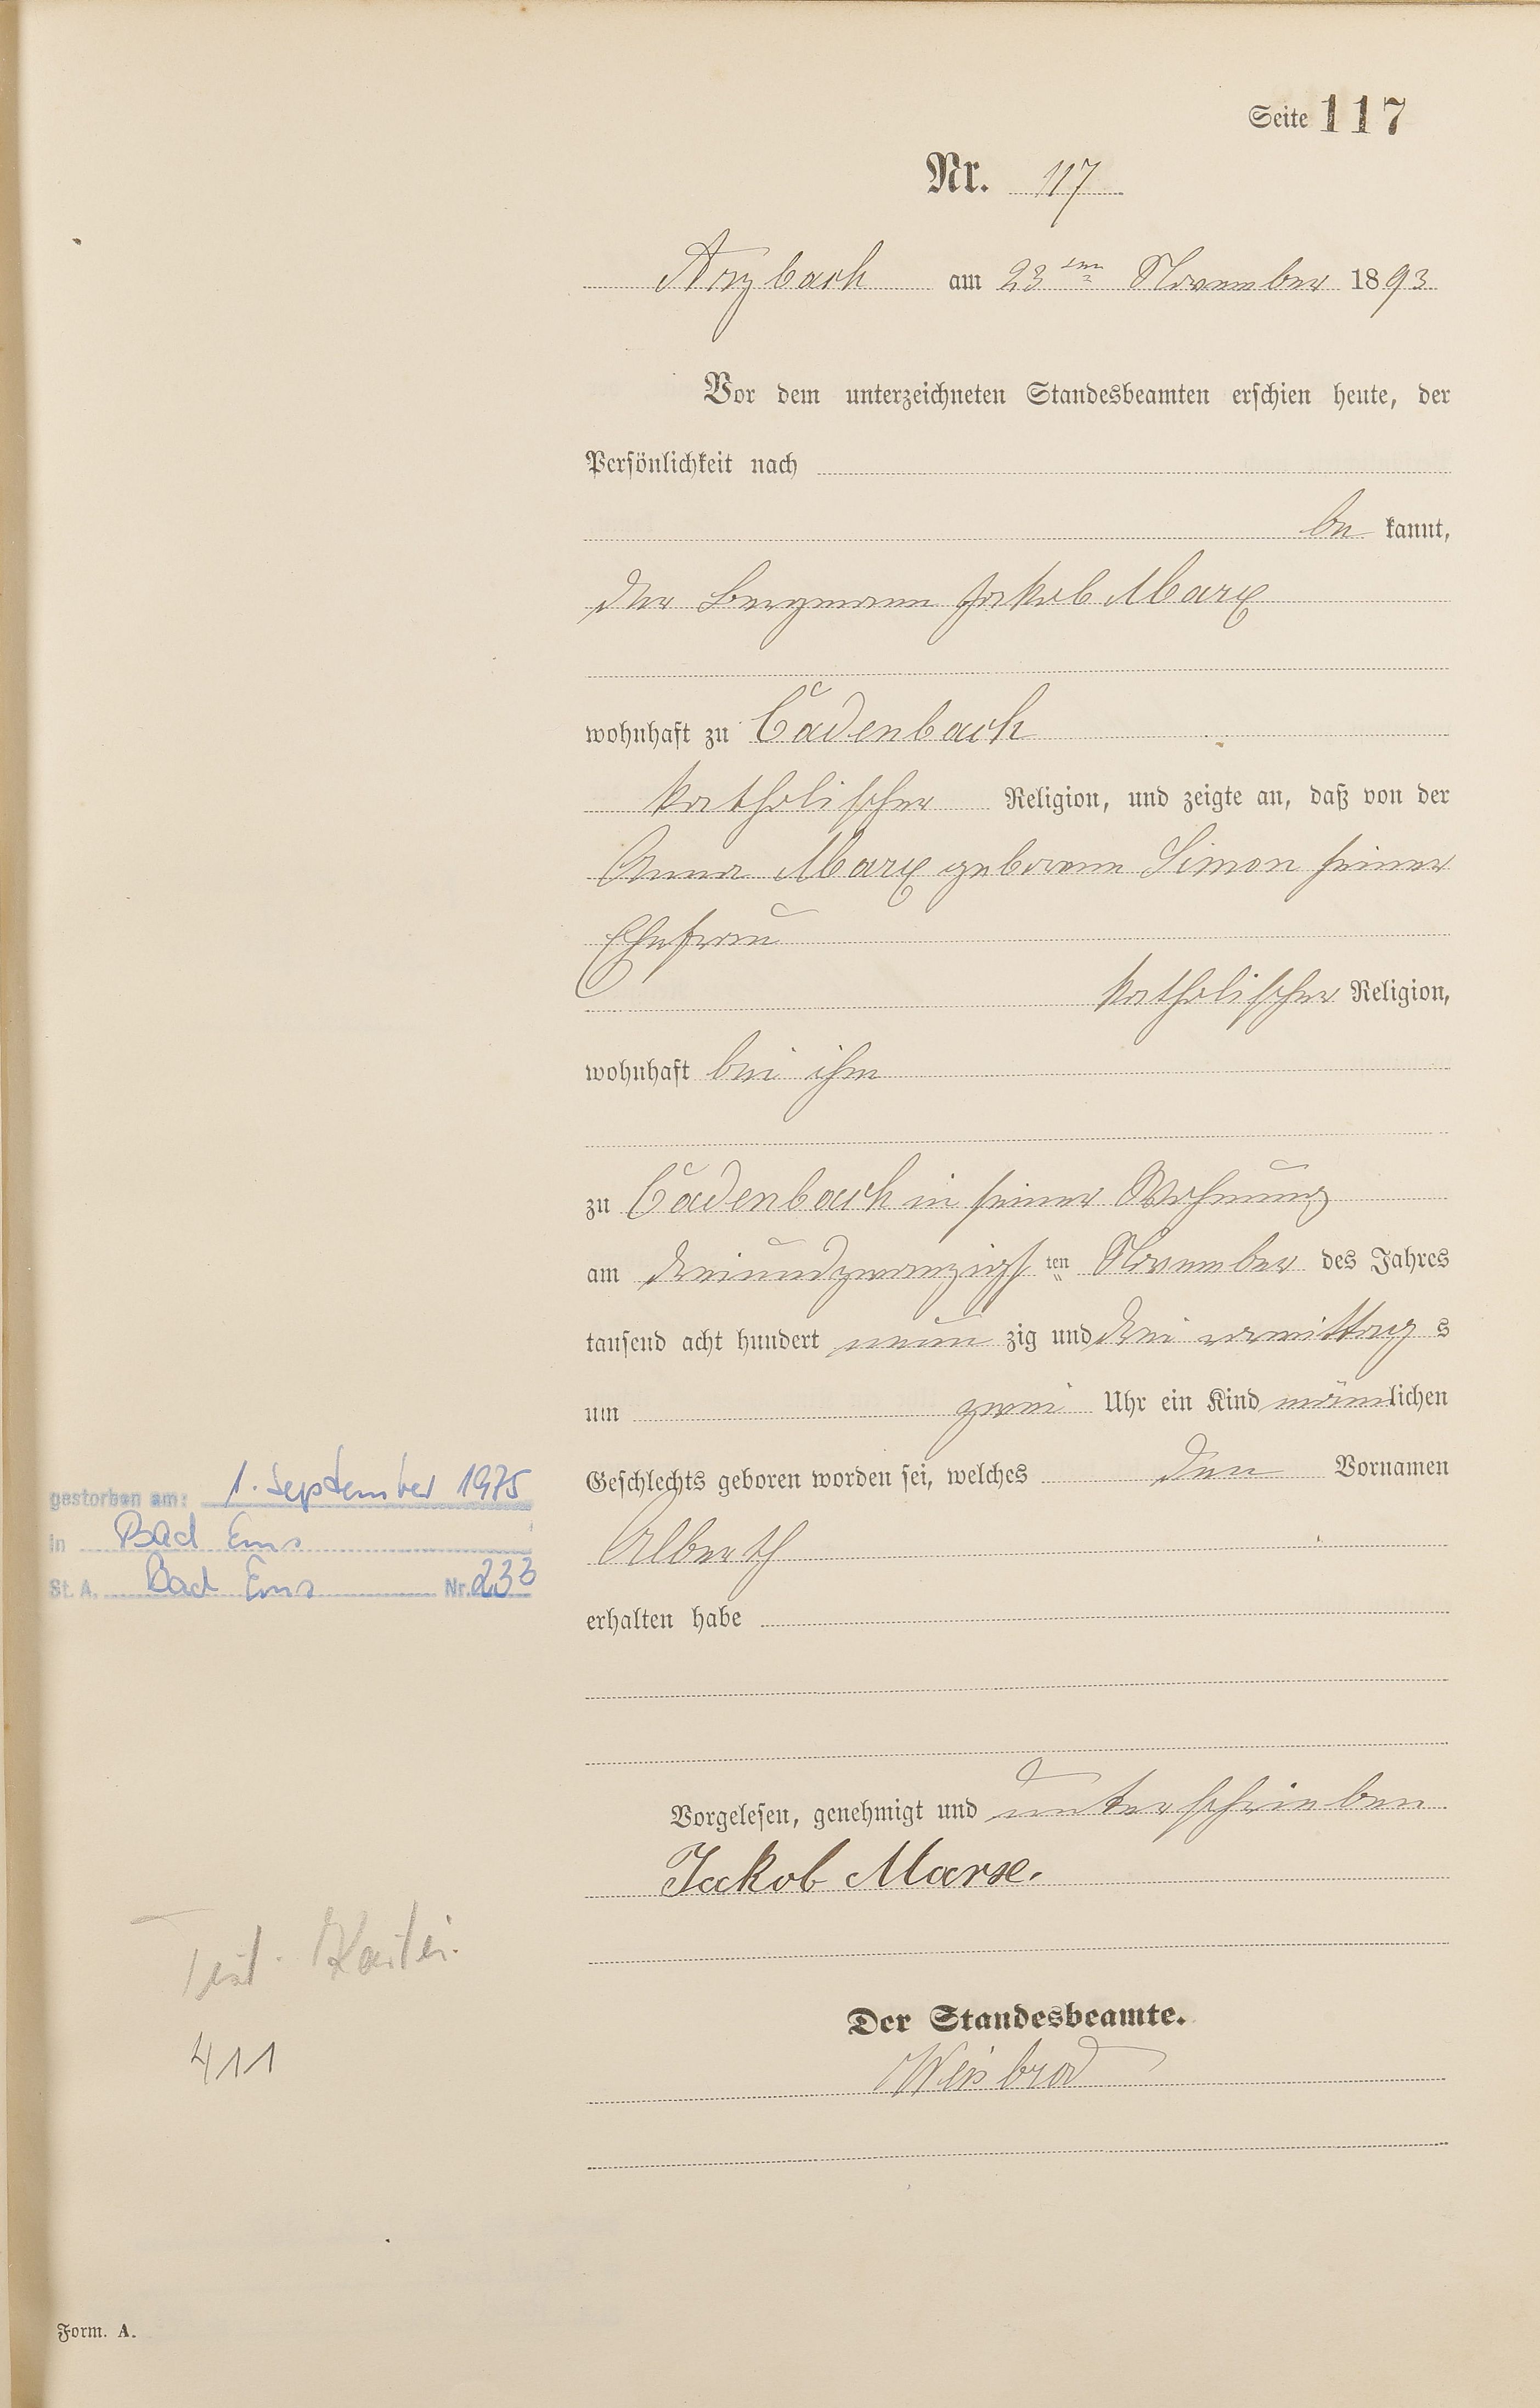 Seite 117
Nr. 117
Arzbach am 23ten November 1893
Vor dem unterzeichneten Standesbeamten erschien heute, der
Persönlichkeit nach
be kannt,
der Bergmann Jakob Marx
wohnhaft zu Cadenbach
katholischer Religion, und zeigte an, daß von der
Anna Marx geborene Simon seiner
Ehefrau
katholischer Religion,
wohnhaft bei ihm
zu Cadenbach in seiner Wohnung
am dreiundzwanzigsten November des Jahres
tausend acht hundert neun zig und drei vormittag s
um zwei Uhr ein Kind männlichen
Geschlechts geboren worden sei, welches den Vornamen
Alberth
erhalten habe
Vorgelesen, genehmigt und unterschrieben
Jakob Marx.
Der Standesbeamte.
Weisbrod
gestorben am: 1. September 1975
in Bad Ems
St. A. Bad Ems Nr. 233
Test. Kartei.
411
Form. A.